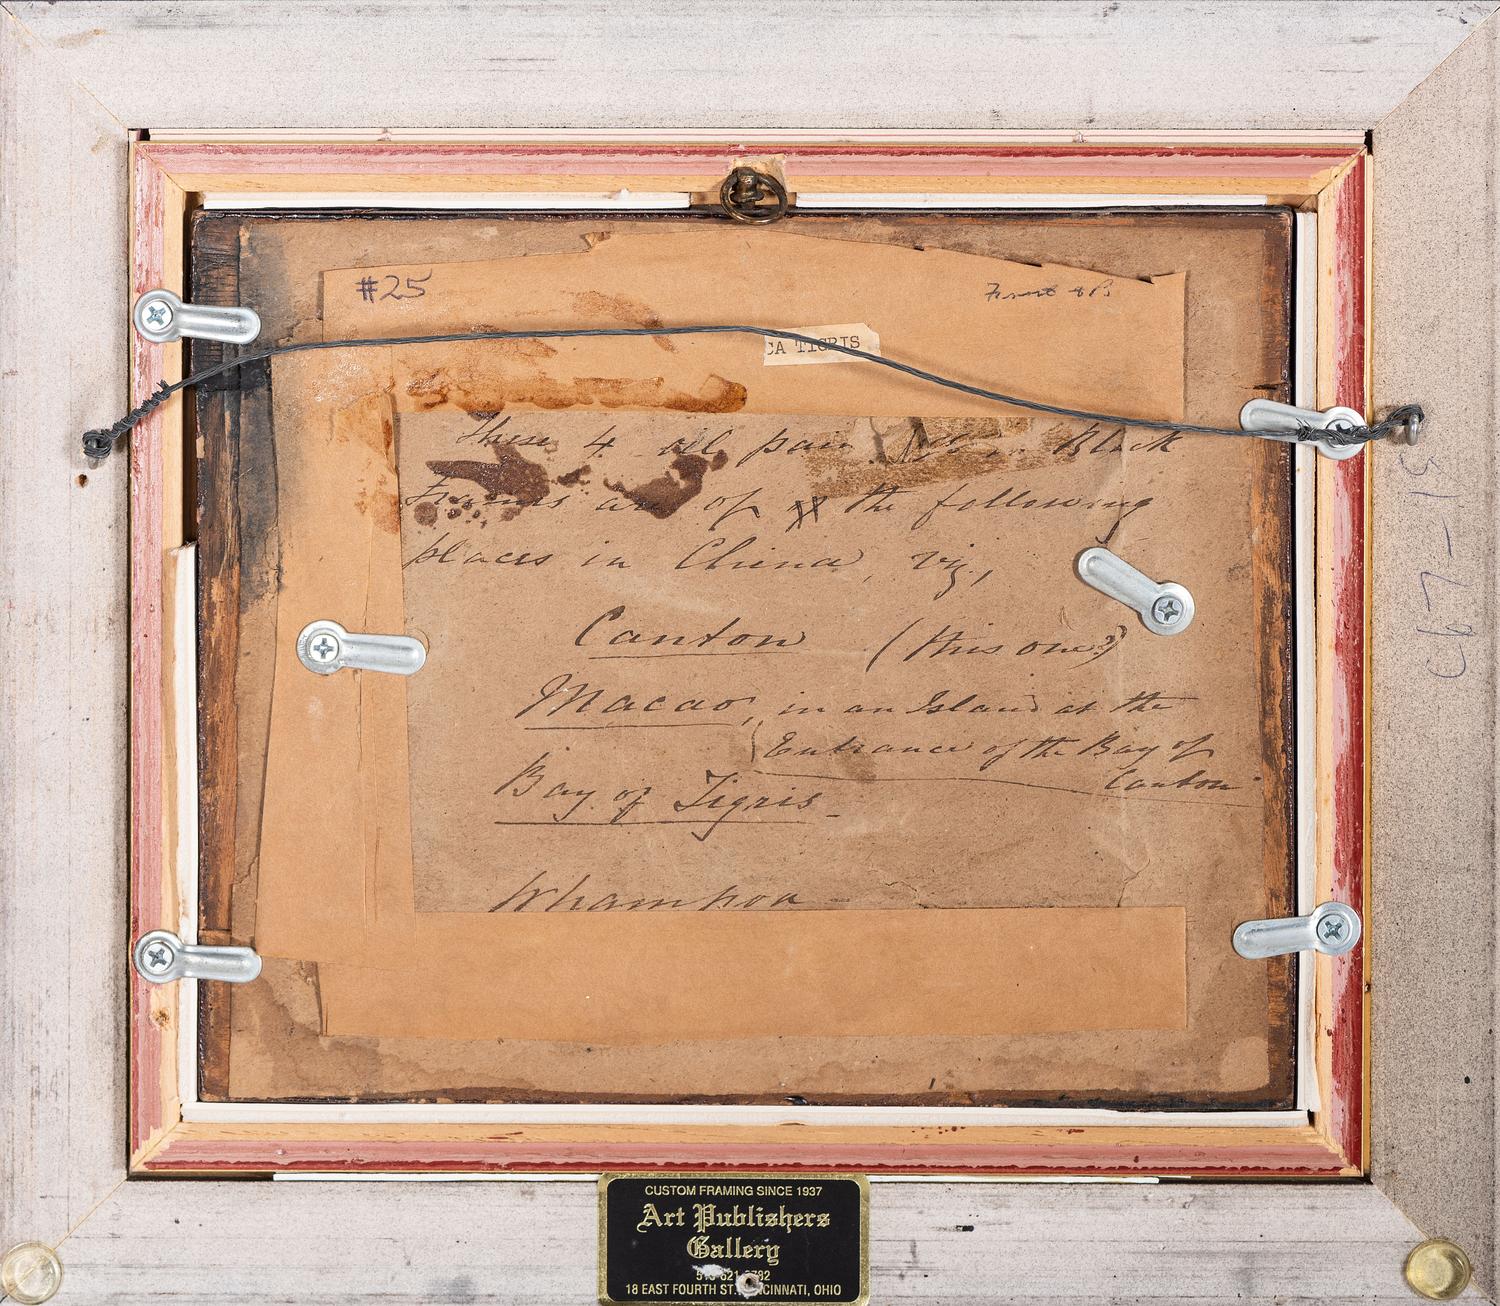 #25
CA TIGRIS
These 4 oil in Black
Frames are of the following
places in China, viz.,
Canton (this one?)
Macao, in an Island at the
Entrance of the Bay of
Canton
Bay of Tigris -
Whampoa
C67-15
CUSTOM FRAMING SINCE 1937
Art Publishers
Gallery
18 EAST FOURTH ST. CINCINNATI, OHIO